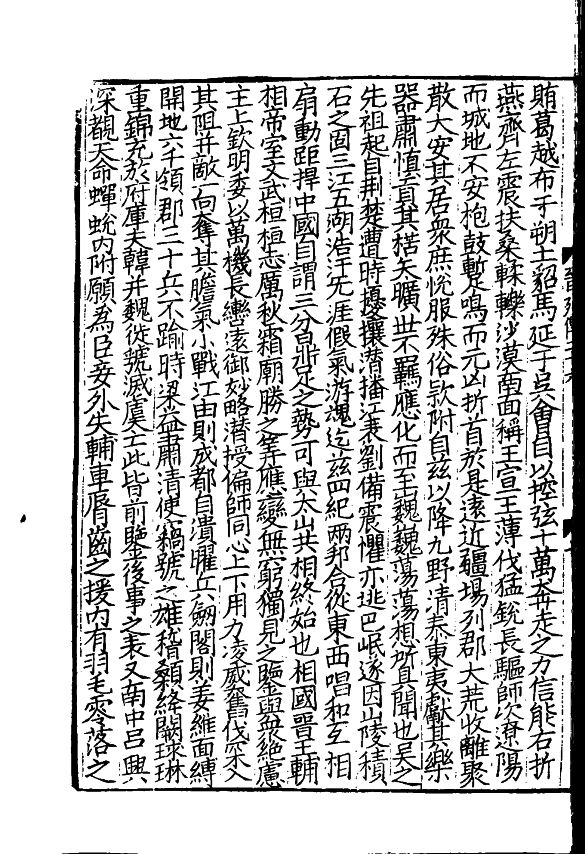 賄葛越布于朔土貂馬延于吳會自以控弦十萬奔走之力信能右折
燕齊左震扶桑輮轢沙漠南面稱王宣王薄伐猛銳長驅師次遼陽
而城地不安枹鼓暫鳴而元凶折首於是遠近疆場列郡大荒收離聚
散大安其居衆庶悅服殊俗款附自兹以降九野清泰東夷獻其樂
器肅慎貢其楛矢曠世不羈應化而至巍巍蕩蕩想所具聞也吳之
先祖起自荆楚遭時擾攘潛播江表劉備震懼亦逃巴岷遂因山陵積
石之固三江五湖浩汗无涯假氣游魂迄兹四紀兩邦合從東西唱和互相
扇動距捍中國自謂三分鼎足之勢可與太山共相終始也相國晉王輔
相帝室文武桓桓志厲秋霜廟勝之筭應變無窮獨見之鑒與衆絕慮
主上欽明委以萬機長轡遠御妙略潛授偏師同心上下用力凌威奮伐深入
其阻并敵一向奪其膽氣小戰江由則成都自潰曜兵劒閣則姜維面縛
開地六千領郡三十兵不踰時梁益肅清使竊號之雄稽顙絳闕球琳
重錦充於府庫夫韓并魏徙虢滅虞亡此皆前鑒後事之表又南中呂興
深覩天命蟬蛻内附願為臣妾外失輔車脣齒之援内有羽毛零落之